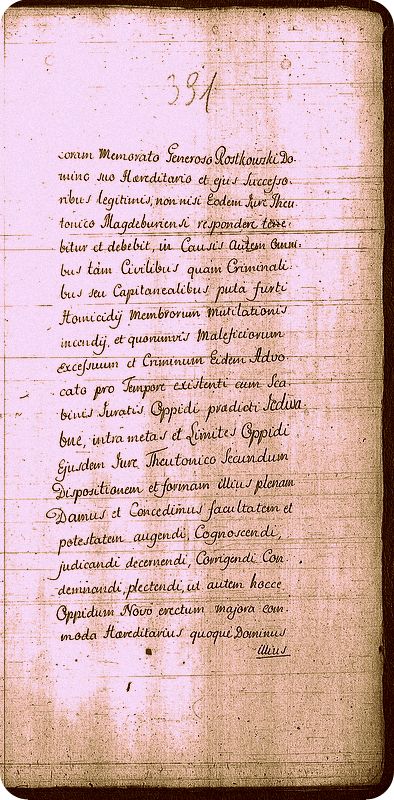 391
coram Memorato Generoso Rostkowski Do-
mino suo Hæreditario et ejus Successo-
ribus legitimis, non nisi Eodem Jure Theu-
tonico Magdeburiensi respondere tene-
bitur et debebit, in Causis Autem omni-
bus tàm Civilibus quam Criminali-
bus seu Capitanealibus puta furti
Homicidij Membrorum Mutilationis
incendij, et quorumvis Maleficiorum
excessuum et Criminum Eidem Advo-
cato pro Tempore existenti cum Sca-
binis Juratis Oppidi prædicti
intra metas et Limites Oppidi
Ejusdem Jure Theutonico Secundum
Dispositionem et formam illius plenam
Damus et Concedimus facultatem et
potestatem augendi, Cognoscendi,
judicandi decernendi, Corrigendi Con-
demnandi, plectendi, ut autem hocce
Oppidum Novo erectum majora com-
moda Hæreditarius quoque Dominus
illius